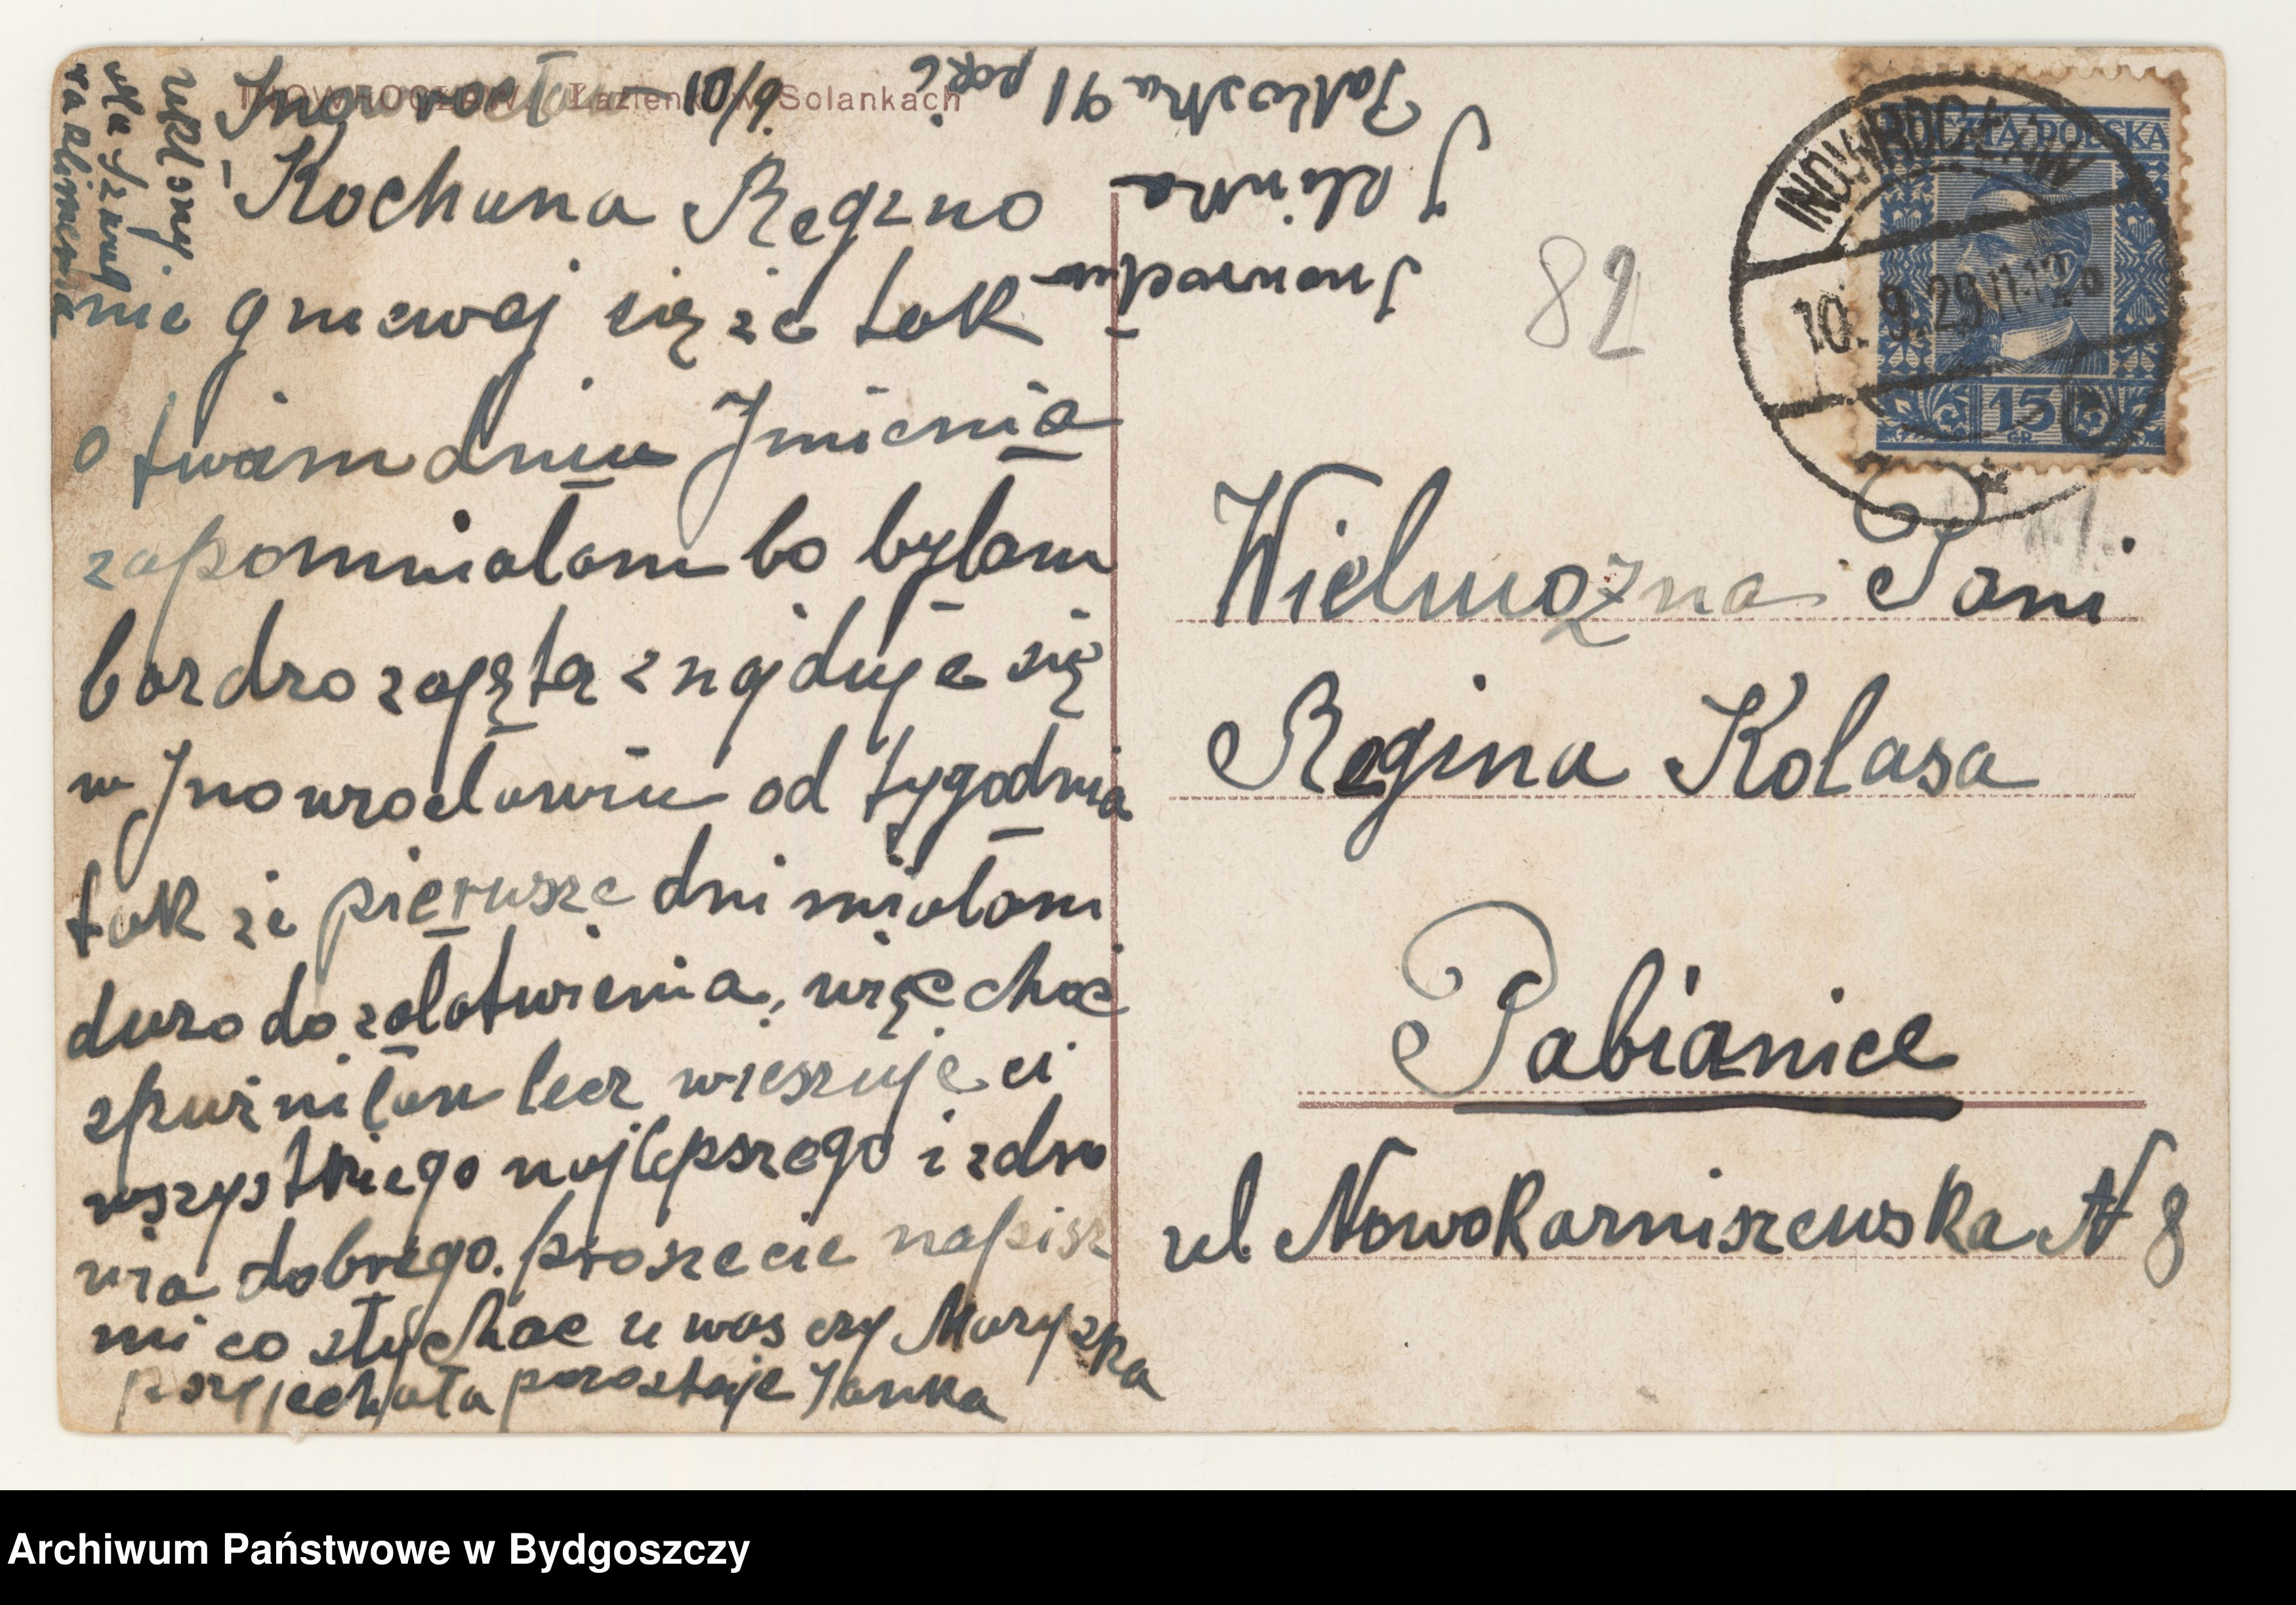 INOWROCŁAW. Łazienki w Solankach
Inowrocław 10/9.
Kochana Regzno
nie gniewaj się że tak
o twoim dniu Imienia
zapomniałam bo byłam
bardzo zajęta znajduje się
w Inowrocławiu od tygodnia
tak że pierwsze dni miałam
durzo do załatwienia, więc choć
spuźniłam lecz wieszuje ci
wszystkiego najlepszego i zdro
wia dobrego. prosze cie napisz
mi co słychac u was czy Maryszka
przyjechała pozostaje Janka
ukłony
dla
Inowrocław
J Klinka
Jakoska 91
82
POCZTA POLSKA
15
GR
INOWROCŁAW
10. 9. 29 11-12
Wielmożna Pani
Regina Kolasa
Pabianice
ul. Nowokarniszewska N 8
Archiwum Państwowe w Bydgoszczy